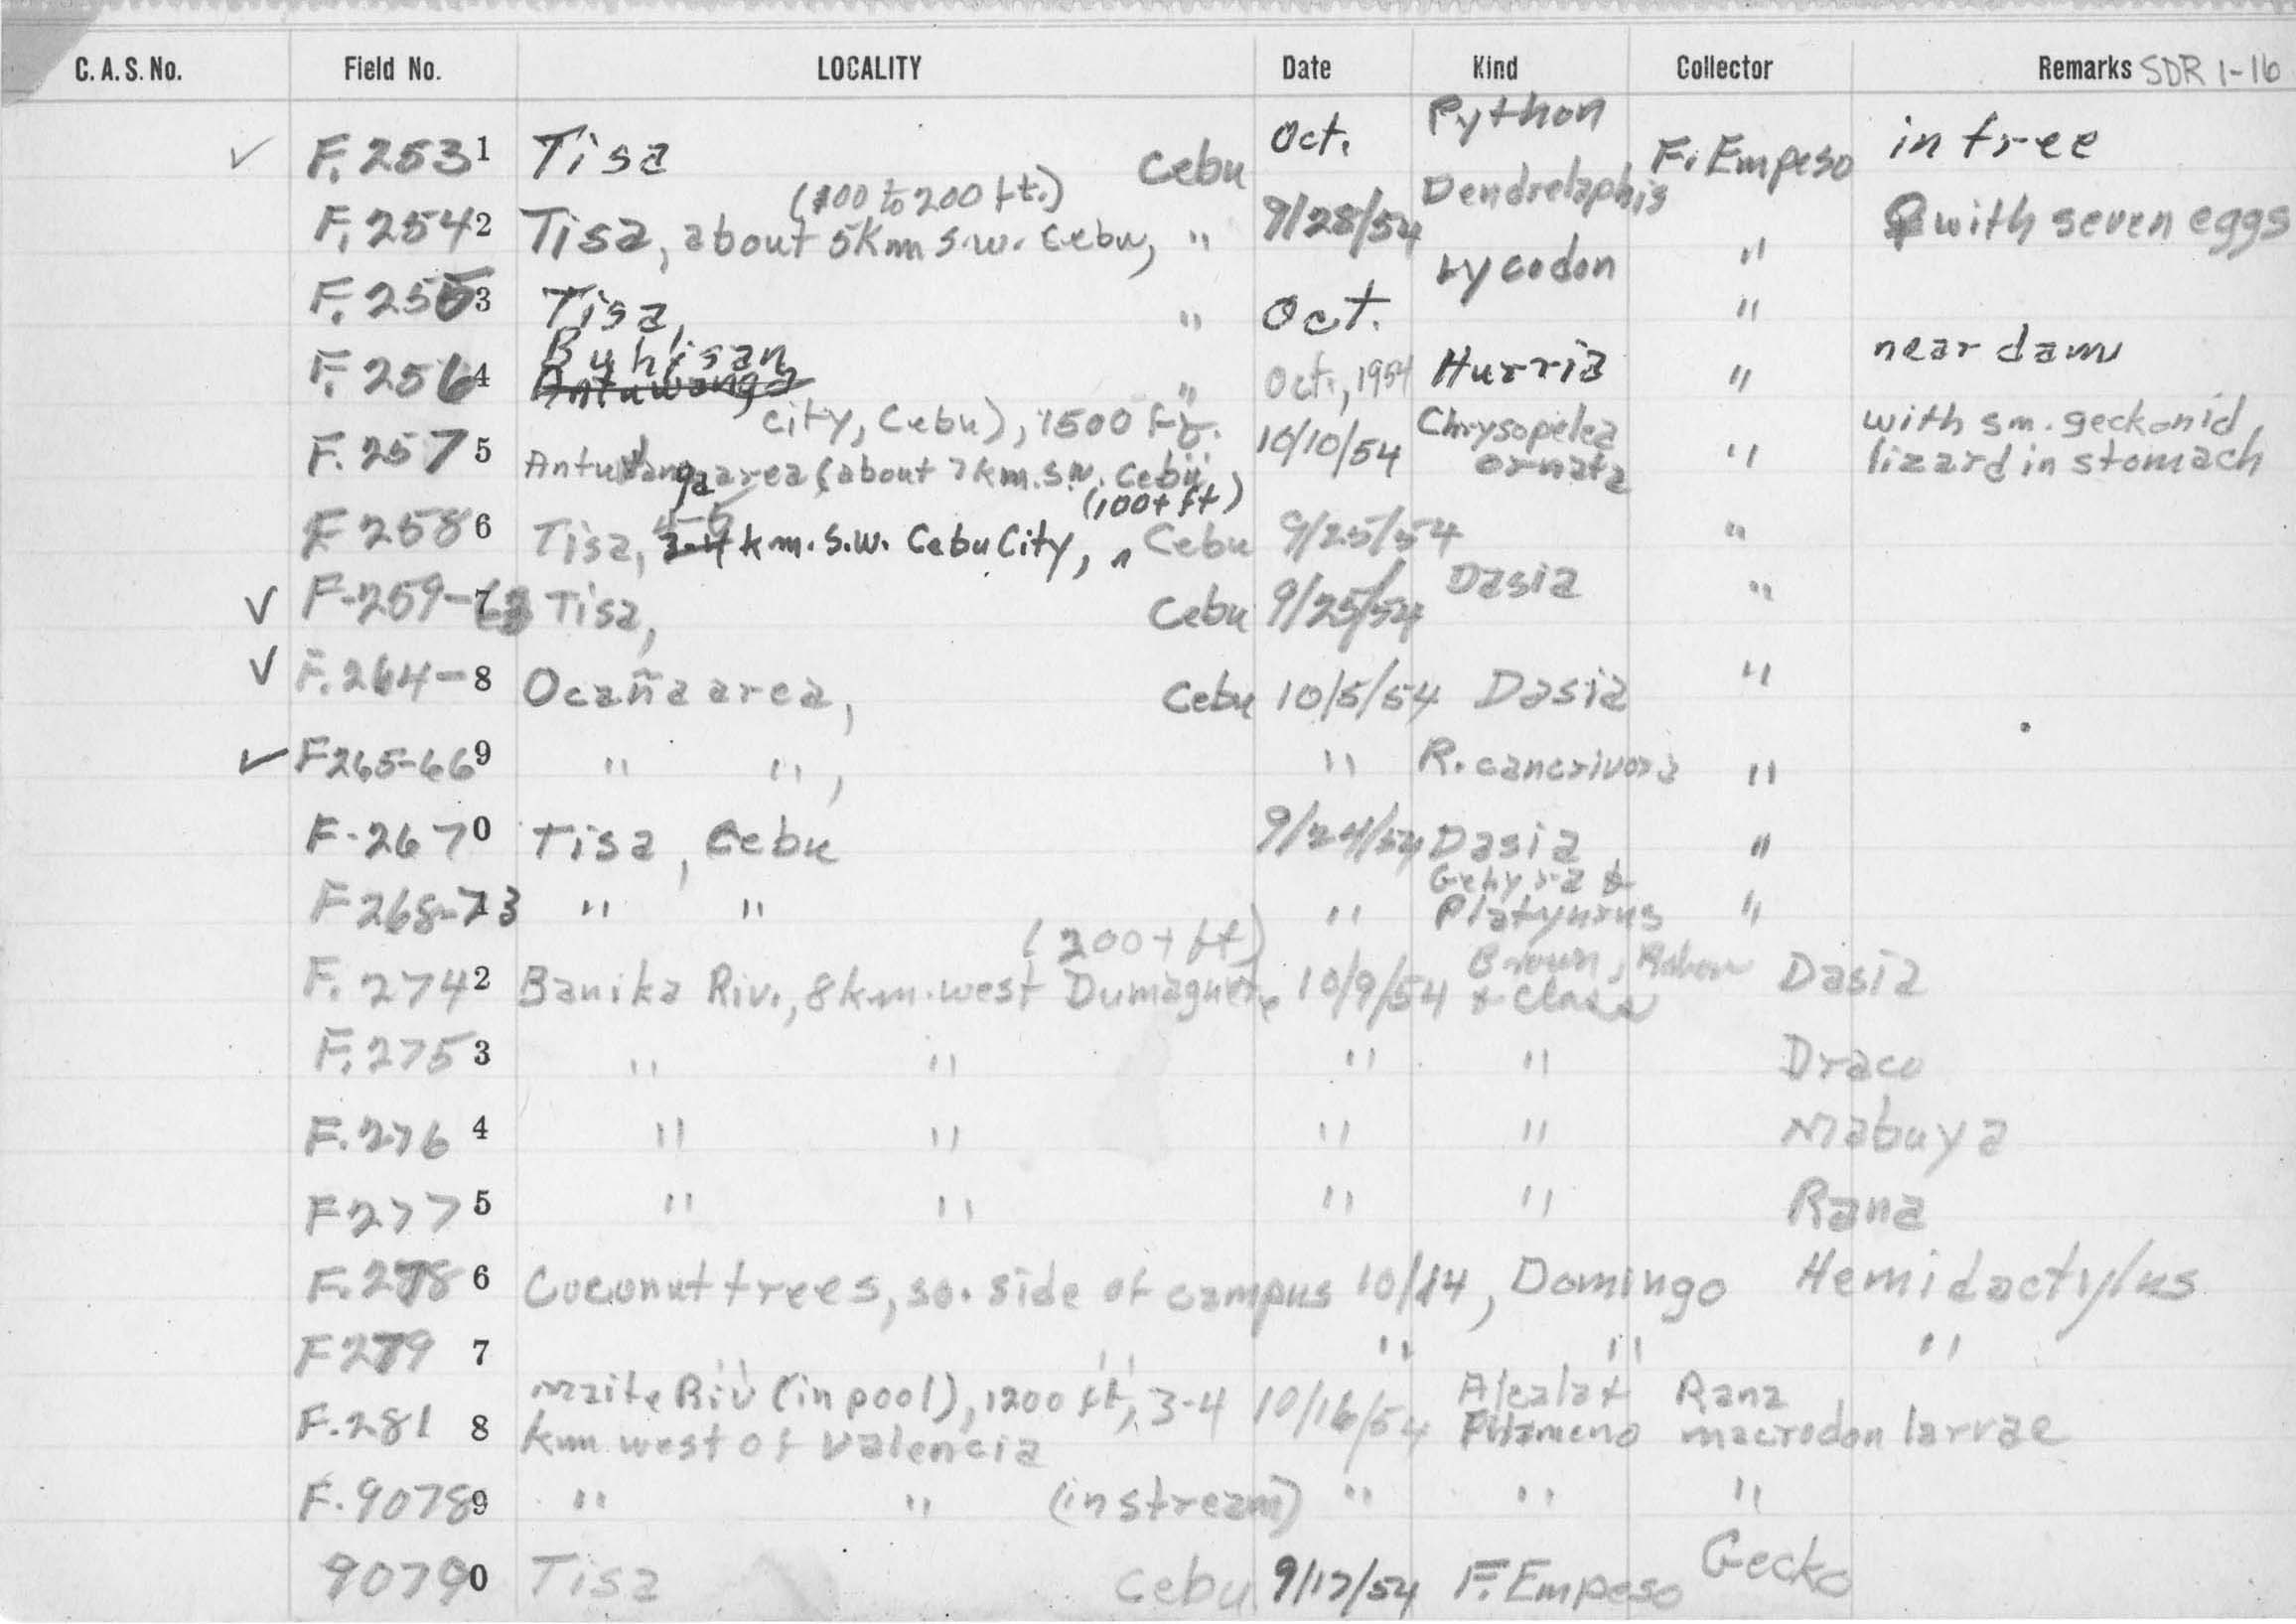 C. A. S. No. Field No. LOCALITY Date Kind Collector Remarks SDR 1-16
✓ F. 253 1 Tisa Cebu Oct. Python F. Empeso in tree
(100 to 200 ft.)
F. 254 2 Tisa, about 5 km S.W. Cebu, " 9/28/54 Dendrelaphis " ♀ with seven eggs
F. 255 3 Tisa, " Oct. Lycodon "
Buhisan
F. 256 4 Antuwanga " Oct., 1954 Hurria " near dam
city, Cebu), 1500 ft. Chrysopelea with sm. geckonid
F. 257 5 Antuwanga area (about 7 km. S.W. Cebu 10/10/54 ornata " lizard in stomach
4-5 (100+ ft)
F 258 6 Tisa, 3-4 km. S.W. Cebu City, " Cebu 9/25/54 "
✓ F-259-63 7 Tisa, Cebu 9/25/54 Dasia "
✓ F. 264- 8 Ocaña area, Cebu 10/5/54 Dasia "
✓ F265-66 9 " ", " R. cancrivora "
F-267 0 Tisa, Cebu 9/24/54 Dasia "
Gehyra &
F 268-73 " " " Platyurus "
(200+ ft) Brown,
F. 274 2 Banika Riv., 8 km. west Dumaguete 10/9/54 & Dasia
F. 275 3 " " " " Draco
F. 276 4 " " " " Mabuya
F 277 5 " " " " Rana
F. 278 6 Coconut trees, so. side of campus 10/14, Domingo Hemidactylus
F 279 7 " " " " "
Maite Riv (in pool), 1200 ft, 3-4 10/16/54 Alcala & Rana
F. 281 8 km west of Valencia macrodon larvae
F. 9078 9 " " (in stream) " " "
9079 0 Tisa Cebu 9/17/54 F. Empeso Gecko